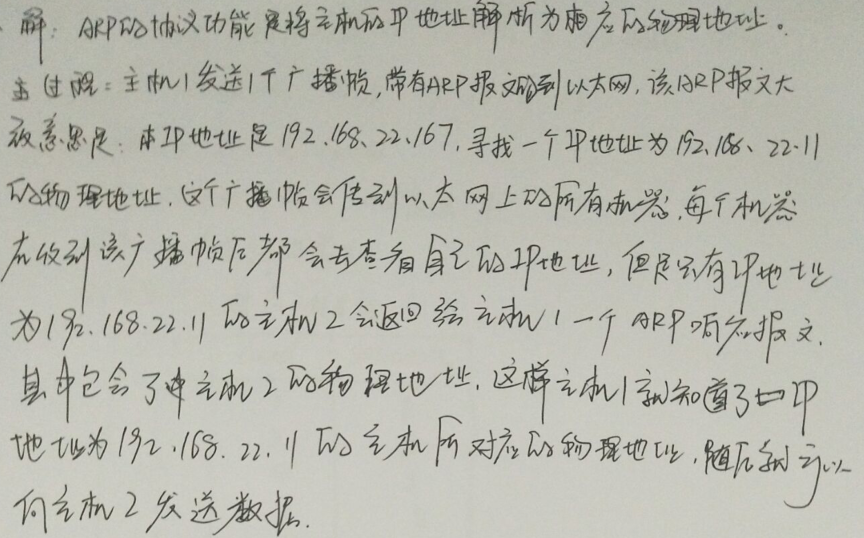 解：ARP的协议功能是将主机的IP地址解析为相应的物理地址。
过程：主机1发送1个广播帧，带有ARP报文到以太网，该ARP报文大
致意思是：本IP地址是192.168.22.167，寻找一个IP地址为192.168.22.11
的物理地址，这个广播帧会传到以太网上的所有机器，每个机器
在收到该广播帧后都会去查看自己的IP地址，但是只有IP地址
为192.168.22.11的主机2会返回给主机1一个ARP响应报文，
其中包含了主机2的物理地址，这样主机1就知道了IP
地址为192.168.22.11的主机所对应的物理地址，随后就可以
向主机2发送数据.